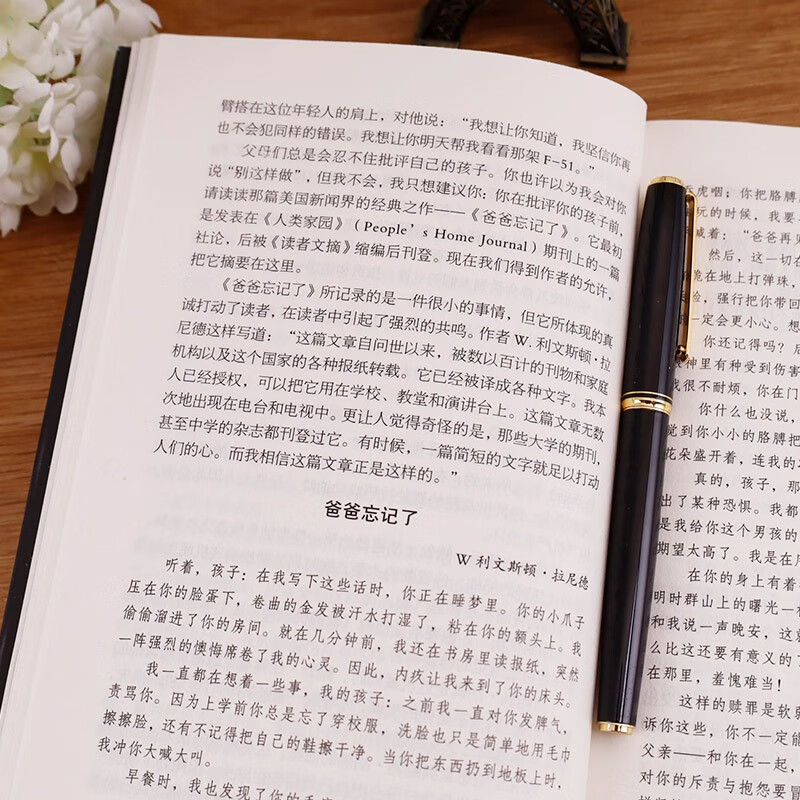 臂搭在这位年轻人的肩上，对他说：“我想让你知道，我坚信你再
也不会犯同样的错误。我想让你明天帮我看看那架 F-51。”
父母们总是会忍不住批评自己的孩子。你也许以为我会对你
说“别这样做”，但我不会，我只想建议你：你在批评你的孩子前，
请读读那篇美国新闻界的经典之作——《爸爸忘记了》。它最初
是发表在《人类家园》（People’s Home Journal）期刊上的一篇
社论，后被《读者文摘》缩编后刊登。现在我们得到作者的允许，
把它摘要在这里。
《爸爸忘记了》所记录的是一件很小的事情，但它所体现的真
诚打动了读者，在读者中引起了强烈的共鸣。作者 W. 利文斯顿·拉
尼德这样写道：“这篇文章自问世以来，被数以百计的刊物和家庭
机构以及这个国家的各种报纸转载。它已经被译成各种文字。我本
人已经授权，可以把它用在学校、教堂和演讲台上。这篇文章无数
次地出现在电台和电视中。更让人觉得奇怪的是，那些大学的期刊，
甚至中学的杂志都刊登过它。有时候，一篇简短的文字就足以打动
人们的心。而我相信这篇文章正是这样的。”
爸爸忘记了
W 利文斯顿·拉尼德
听着，孩子：在我写下这些话时，你正在睡梦里。你的小爪子
压在你的脸蛋下，卷曲的金发被汗水打湿了，粘在你的额头上。我
偷偷溜进了你的房间。就在几分钟前，我还在书房里读报纸，突然
一阵强烈的懊悔席卷了我的心灵。因此，内疚让我来到了你的床头。
我一直都在想着一些事，我的孩子：之前我一直对你发脾气，
责骂你。因为上学前你总是忘了穿校服，洗脸也只是简单地用毛巾
擦擦脸，还有不记得把自己的鞋擦干净。当你把东西扔到地板上时，
我冲你大喊大叫。
早餐时，我也发现了你的
虎咽；你把胳膊
玩的时候，我要
喊着：“爸爸再见
然后，这一切在
跪在地上打弹珠，
强行把你带回
一定会更小心。想
你还记得吗？
眼神里有种受到伤害
我很不耐烦，你在门
你什么也没说，
觉到你小小的胳膊把
花朵盛开着，连我的
真的，孩子，那
出了某种恐惧。我都
是我给你这个男孩的
期望太高了。我是在用
在你的身上有着
明时群山上的曙光一样
和我说一声晚安，这
么比这还要有意义的了
在那里，羞愧难当！
这样的赎罪是软弱
诉你这些，你不一定能
父亲——和你在一起，
对你的斥责与抱怨要冒